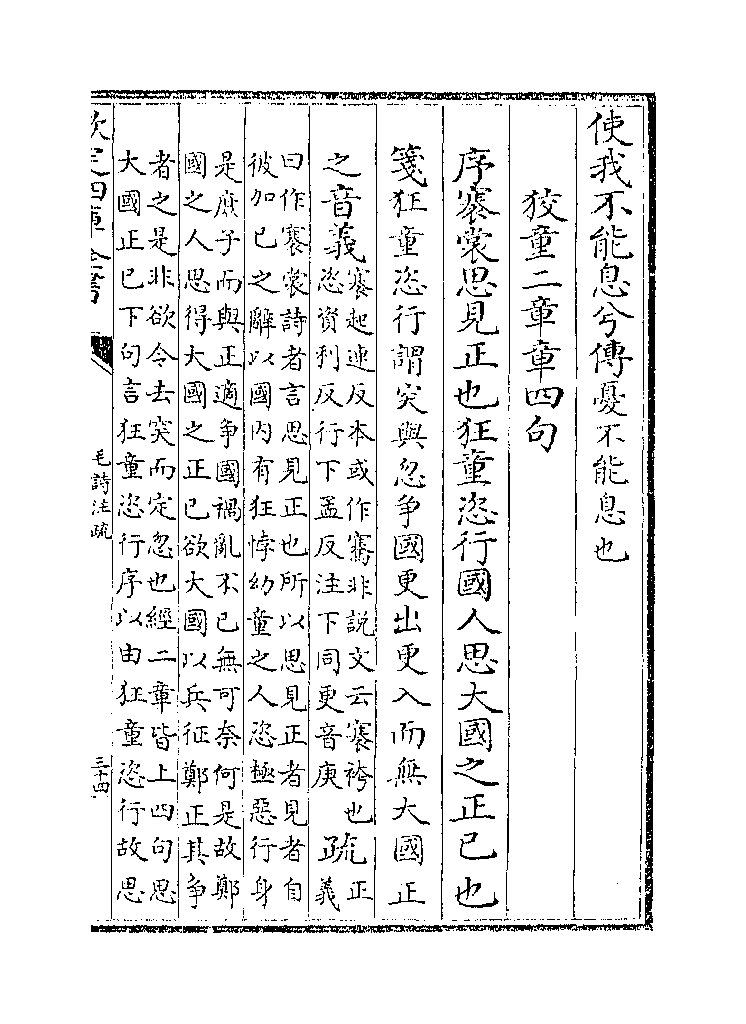 使我不能息兮傳憂不能息也
狡童二章章四句
序褰裳思見正也狂童恣行國人思大國之正已也
箋狂童恣行謂突與忽爭國更出更入而無大國正
之音義褰起連反本或作騫非說文云褰袴也
恣資利反行下孟反注下同更音庚
疏正
義
曰作褰裳詩者言思見正也所以思見正者見者自
彼加已之辭以國內有狂悖幼童之人恣極惡行身
是庶子而與正適爭國禍亂不已無可奈何是故鄭
國之人思得大國之正已欲大國以兵征鄭正其爭
者之是非欲令去突而定忽也經二章皆上四句思
大國正已下句言狂童恣行序以由狂童恣行故思
欽定四庫全書
毛詩注疏
三十四